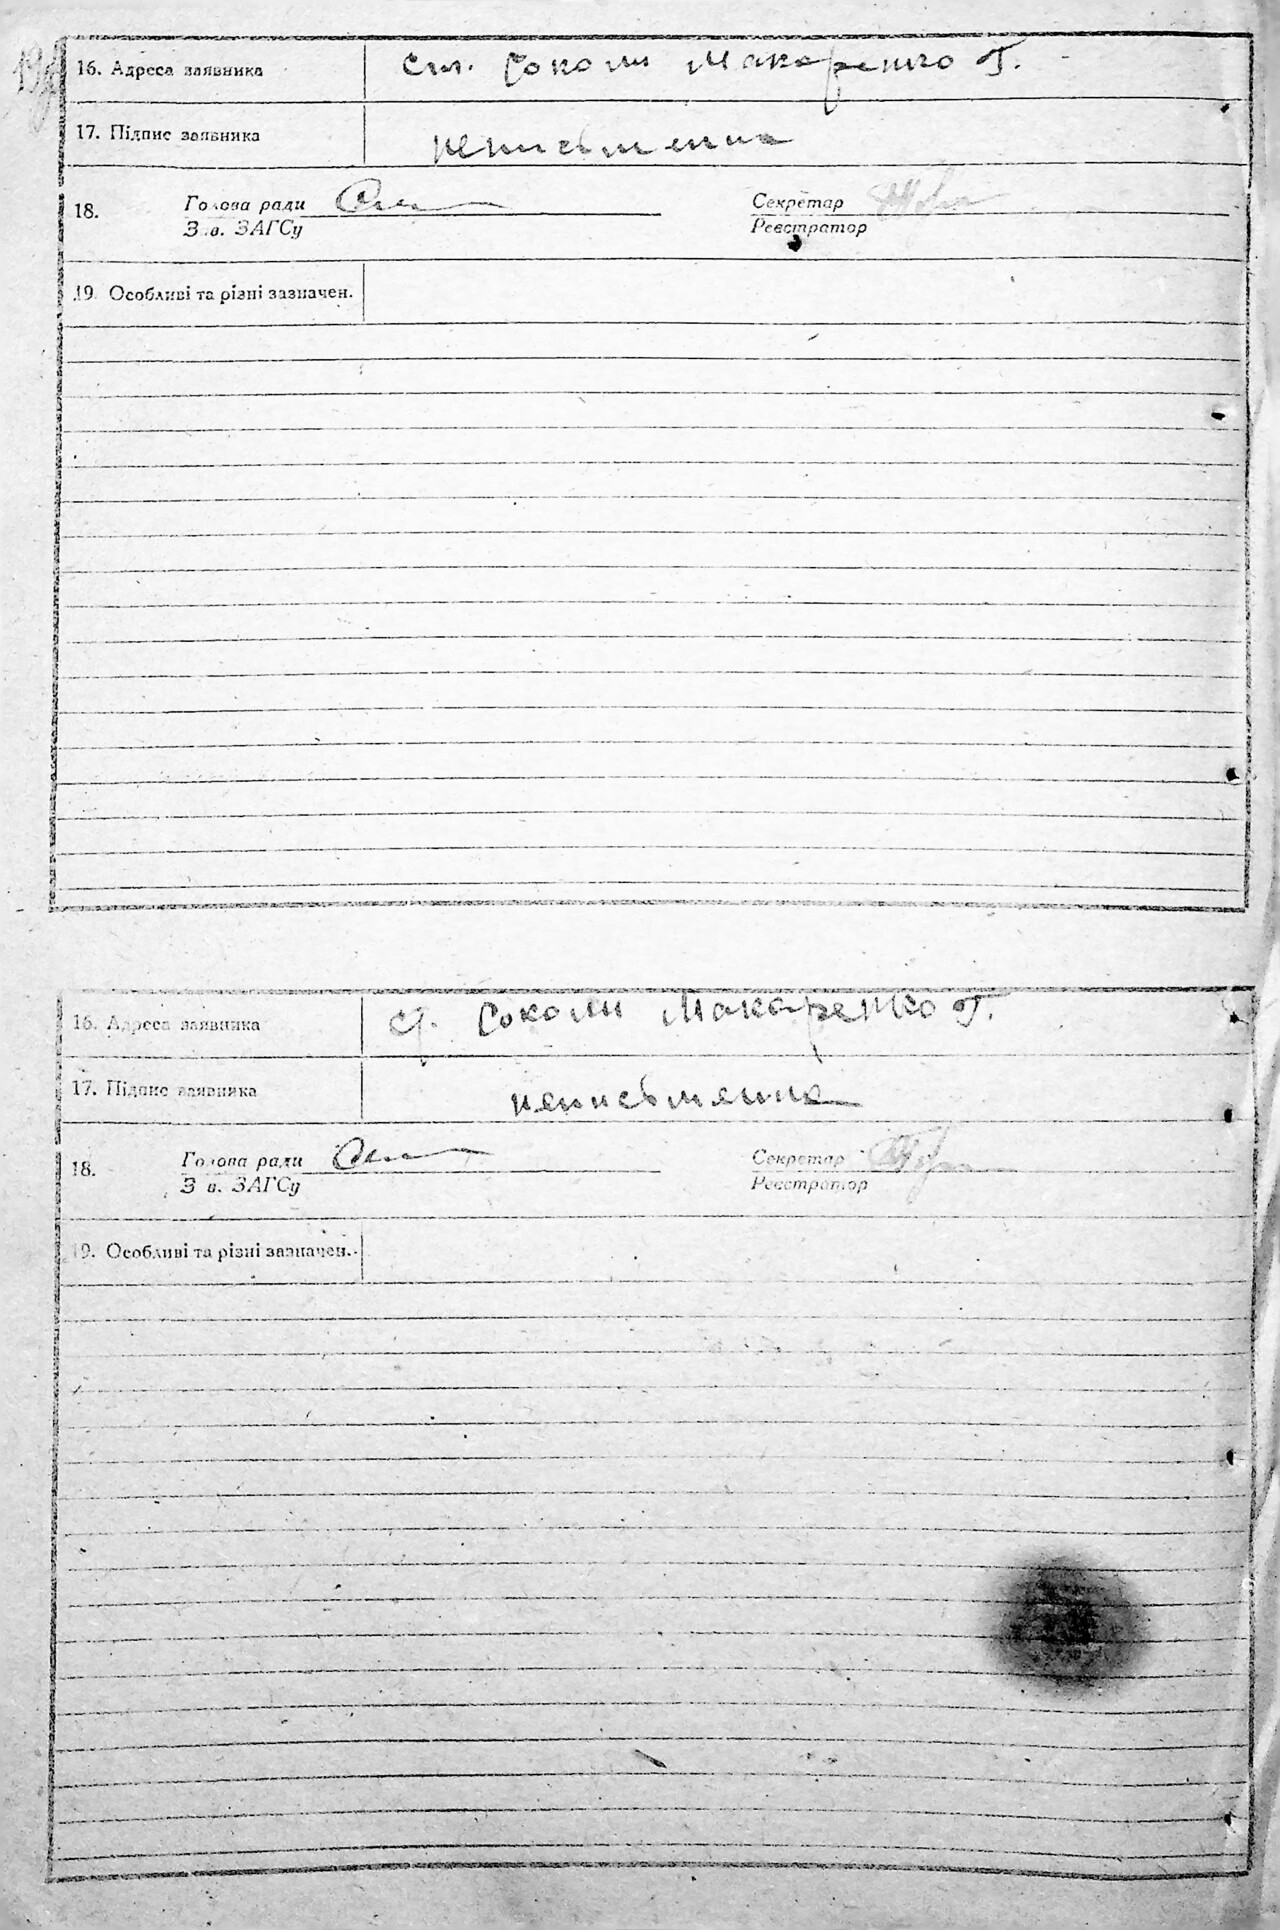 16. Адреса заявника Соколи Макаренко Т.
17. Підпис заявника неписьменна
18. Голова ради Секретар
Зав. ЗАГСу Реєстратор
19. Особливі та різні зазначен.
16. Адреса заявника Соколи Макаренко Т.
17. Підпис заявника неписьменна
18. Голова ради Секретар
Зав. ЗАГСу Реєстратор
19. Особливі та різні зазначен.